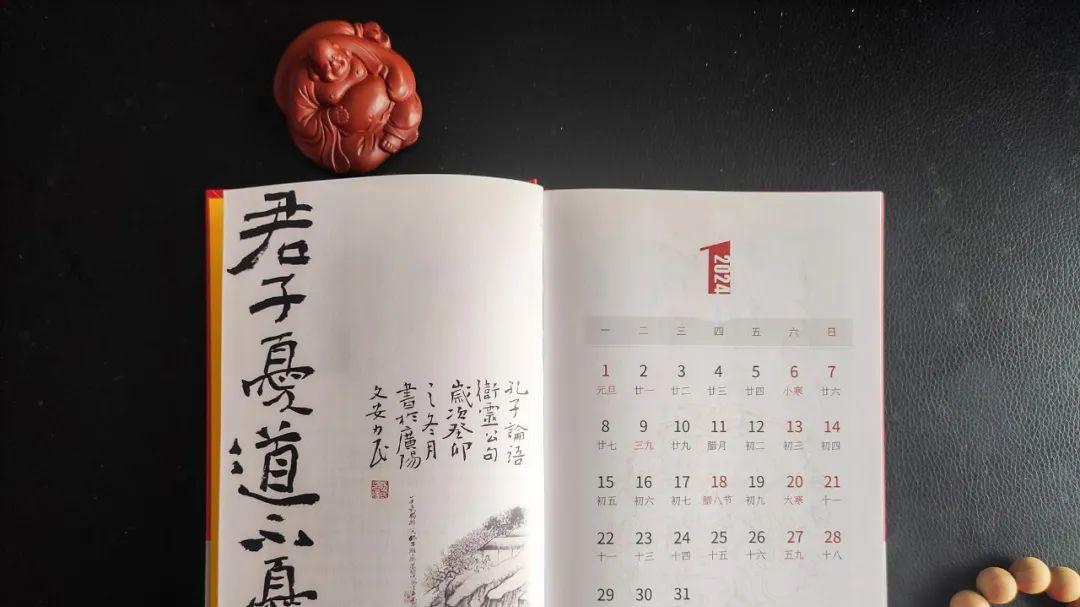 君子憂道不憂
孔子論語
衛靈公句
歲次癸卯
之冬月
書於廣陽
文安力民
1
2024
一 二 三 四 五 六 日
1 2 3 4 5 6 7
元旦 廿一 廿二 廿三 廿四 小寒 廿六
8 9 10 11 12 13 14
廿七 三九 廿九 腊月 初二 初三 初四
15 16 17 18 19 20 21
初五 初六 初七 腊八节 初九 大寒 十一
22 23 24 25 26 27 28
十二 十三 十四 十五 十六 五九 十八
29 30 31